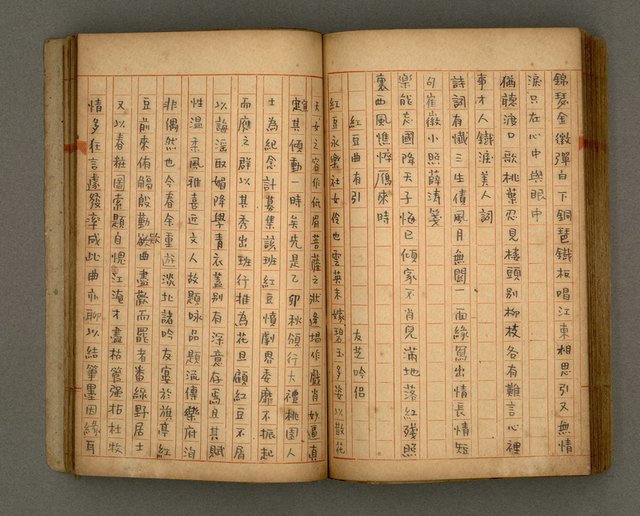 錦瑟金徽彈白下銅琶鐵板唱江東相思引又無情
淚只在心中與眼中
猶聽渡口歌桃葉忍見樓頭別柳枝各有難言心裡
事才人鐵淚美人詞
詩詞有懺三生債風月無關一面緣寫出情長情短
句崔徽小照薛濤箋
樂能亡國降天子悔已傾家不肖兒滿地落紅殘照
裏西風憔悴鴈來時
紅豆曲有引
友芝吟侶
紅豆永樂社女伶也雲英未嫁碧玉多姿以散花
天女之容作低眉菩薩之狀逢場作戲肖妙逼真
定其傾動一時矣先是乙卯秋頒行大禮桃園人
士為紀念計募集該班紅豆憤劇界委靡不振起
而應之群以其秀出班行推為花旦顧紅豆不屑
以謟淫取媚降學青衣蓋別有深意存焉且其賦
性溫柔風雅喜近文人故題咏品題流傳樂府洵
非偶然也今春余重遊淡北諸吟友宴於旗亭紅
豆前來侑觴殷勤歌曲盡歡而罷老番綠野居士
又以春粧圖索題自愧江淹才盡枯管強拈杜牧
情多狂言遽發率成此曲亦聊以結筆墨因緣耳